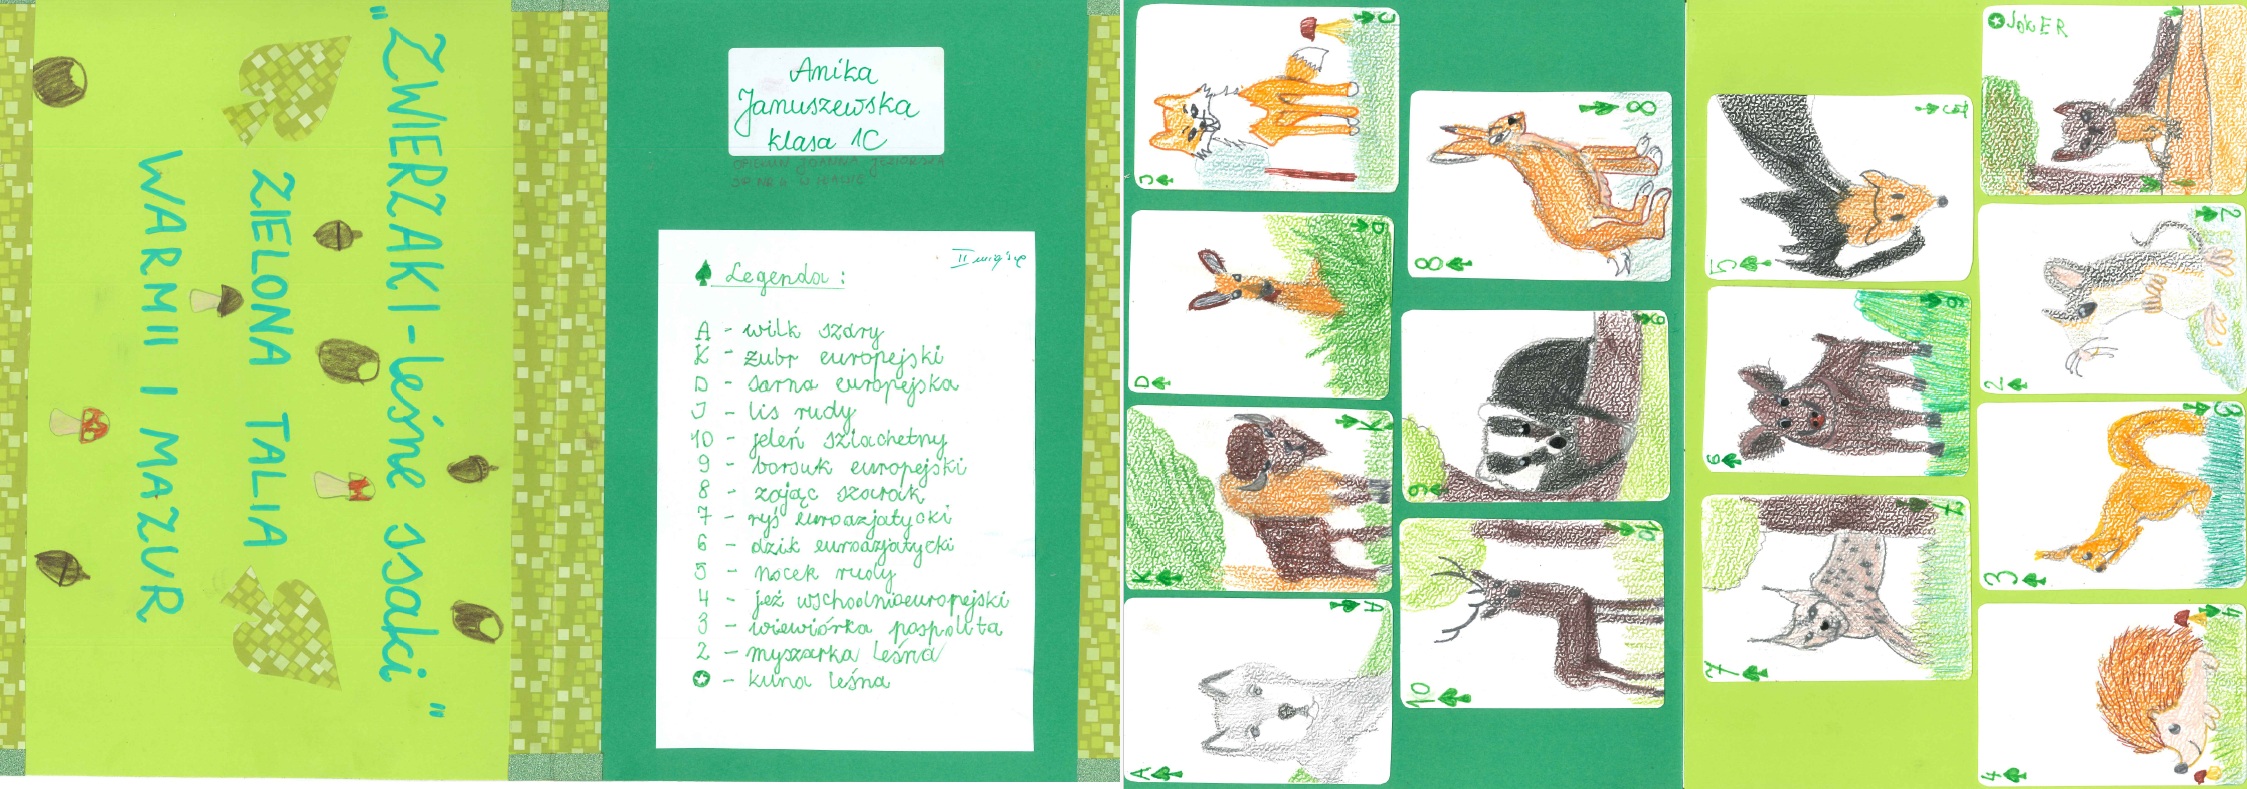 "ZWIERZAKI-leśne ssaki"
ZIELONA TALIA
WARMII I MAZUR
Anika
Januszewska
klasa 1C
OPIEKUN JOANNA
SP NR 4 W IŁAWIE
II miejsce
Legenda:
A - wilk szary
K - żubr europejski
D - sarna europejska
J - lis rudy
10 - jeleń szlachetny
9 - borsuk europejski
8 - zając szarak
7 - ryś euroazjatycki
6 - dzik euroazjatycki
5 - nocek rudy
4 - jeż wschodnioeuropejski
3 - wiewiórka pospolita
2 - myszarka leśna
- kuna leśna
J
J
D
D
K
K
A
A
8
8
9
9
10
10
5
6
6
7
7
JokER
2
2
3
3
4
4